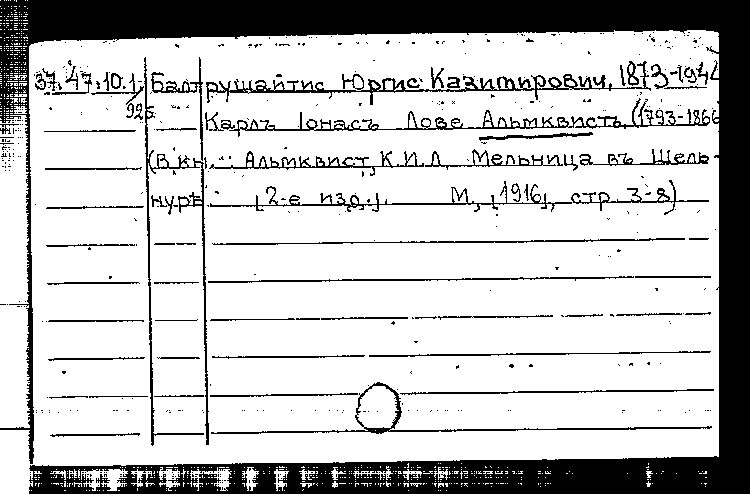 37.47.10.1. Балтрушайтис, Юргис Казимирович, 1873-1944
925
Карлъ Iонасъ Лове Альмквистъ, (1793-1866
(В кн.: Альмквист, К.И.Л. Мельница въ Шель-
нурѣ [2-е изд.]. М., [1916], стр. 3-8)